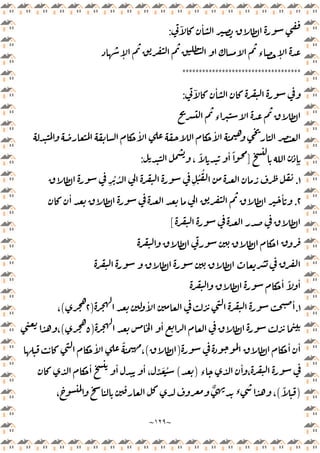 ففي سورة الطلاق يصير الشأن كالآتي:
عدة ثم الإحصاء ثم الامساك او التطليق ثم التفريق ثم الإشهاد
************************************
وفي سورة البقرة كان الشأن كالآتي:
الطلاق ثم عدة الاستبراء ثم التسريح
العنصر التاريخي وهيمنة الأحكام اللاحقة علي الأحكام السابقة المتعارضة والمتبدلة
بإذن الله بالنسخ [محواً أو تبديلا، ويشمل التبديل:
١. نقل فرض زمان العدة من القُبُلِ في سورة البقرة الي الدُبُرِ في سورة الطلاق
٢. وتأخير الطلاق ثم التفريق الي ما بعد العدة في سورة الطلاق بعد أن كان
الطلاق في صدر العدة في سورة البقرة]
فروق احكام الطلاق بين سورتي الطلاق والبقرة
الفرق في تشريعات الطلاق بين سورة الطلاق و سورة البقرة
أولاً أحكام سورة الطلاق والبقرة
١. سورة البقرة التي نزلت في العامين الأولين بعد الهجرة(٢هجري)،
بينما نزلت سورة الطلاق في العام الرابع أو الخامس بعد الهجرة(٥هجري)، وهذا يعني
أن أحكام الطلاق الموجودة في سورة(الطلاق)، مهيمنةً علي الأحكام التي كانت قبلها
في سورة البقرة،وأن الذي جاء (بعد) سَيُعَدِّل، أو يبدل أو ينسخُ أحكام الذي كان
(قبلاً)، وهذا شيء بديهيٌّ ومعروف لدي كل العارفين بالناسخ والمنسوخ،
~١٢٩~